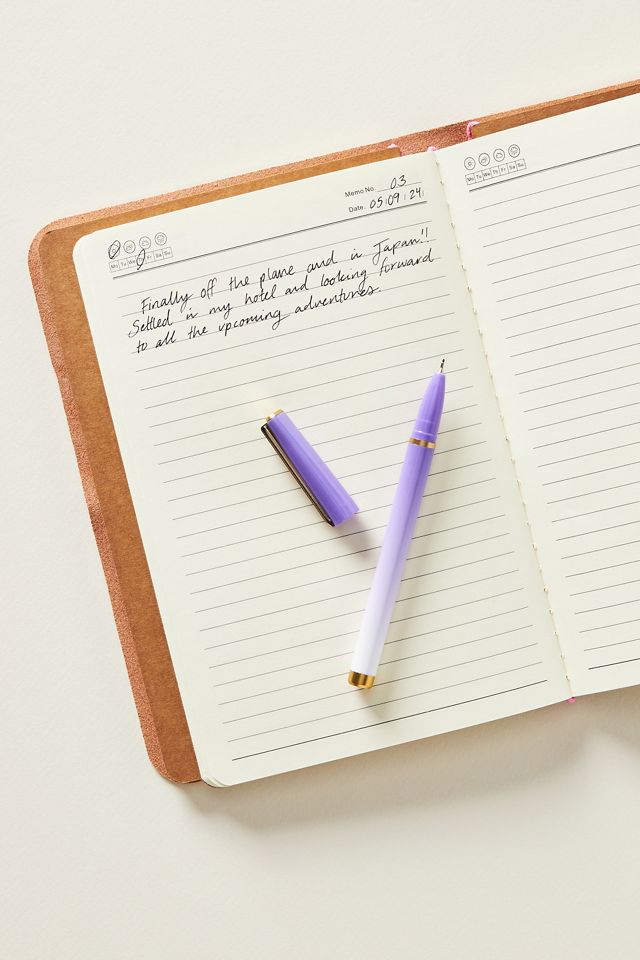 Memo No. 03
Date. 05/09/24/
Mo Tu We Th Fr Sa Su
Finally off the plane and in Japan!!
Settled in my hotel and looking forward
to all the upcoming adventures.
Mo Tu We Th Fr Sa Su